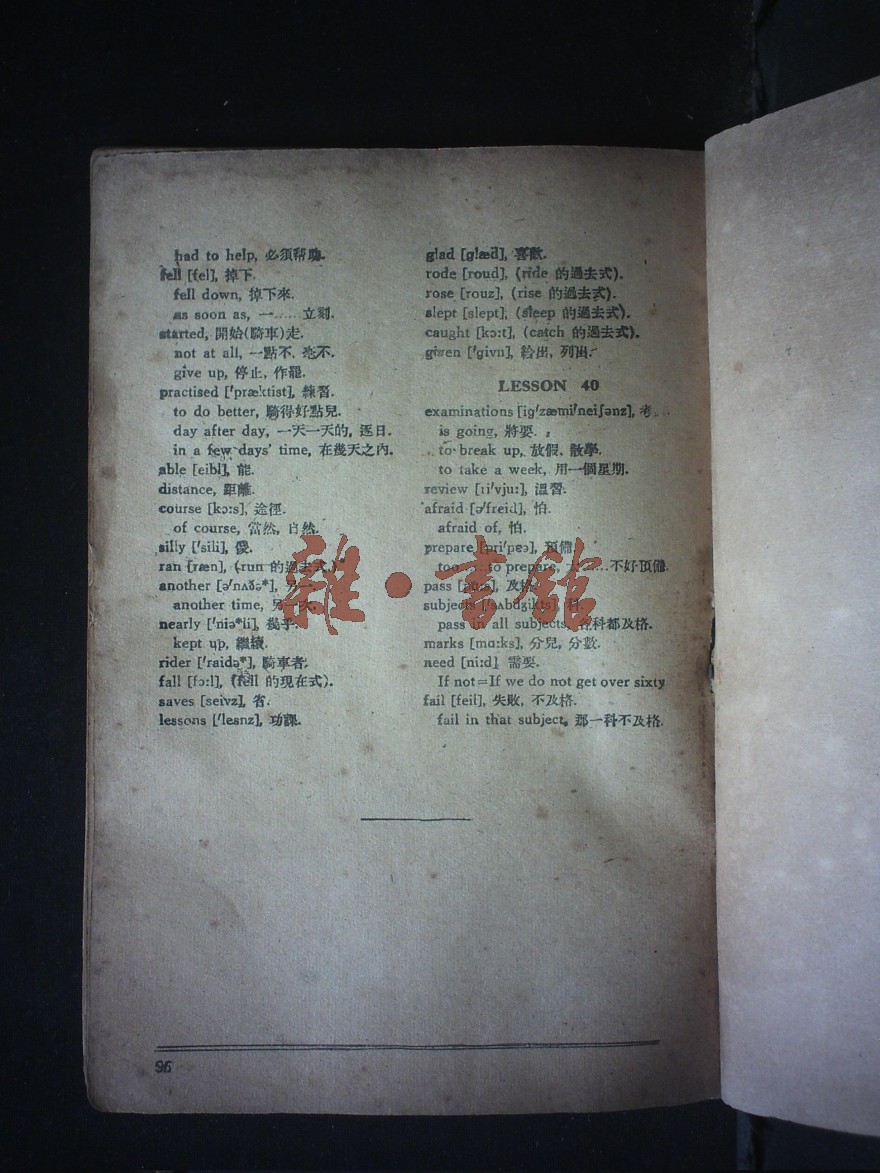 had to help, 必須幫助.
fell [fel], 掉下.
fell down, 掉下來.
as soon as, 一..... 立刻.
started, 開始(騎車)走.
not at all, 一點不, 毫不.
give up, 停止, 作罷.
practised ['præktist], 練習.
to do better, 騎得好點兒.
day after day, 一天一天的, 逐日.
in a few days' time, 在幾天之內.
able [eibl], 能.
distance, 距離.
course [kɔ:s], 途徑.
of course, 當然, 自然.
silly ['sili], 傻.
ran [ræn], (run 的過去式.)
another [ə'nʌðə*], 另一
another time, 另一次.
nearly ['niə*li], 幾乎.
kept up, 繼續.
rider ['raidə*], 騎車者.
fall [fɔ:l], (fell 的現在式).
saves [seivz], 省.
lessons ['lesnz], 功課.
glad [glæd], 喜歡.
rode [roud], (ride 的過去式).
rose [rouz], (rise 的過去式).
slept [slept], (sleep 的過去式).
caught [kɔ:t], (catch 的過去式).
given ['givn], 給出, 列出.
LESSON 40
examinations [ig'zæmi'neiʃənz], 考
is going, 將要.
to break up, 放假, 散學.
to take a week, 用一個星期.
review [ri'vju:], 溫習.
afraid [ə'freid], 怕.
afraid of, 怕.
prepare [pri'pɛə], 預備.
too ... to prepare, ...不好預備.
pass [pɑ:s], 及格.
subjects ['sʌbdʒikts], 科.
pass in all subjects, 各科都及格.
marks [mɑ:ks], 分兒, 分數.
need [ni:d], 需要.
If not=If we do not get over sixty
fail [feil], 失敗, 不及格.
fail in that subject, 那一科不及格.
96
雜·書館